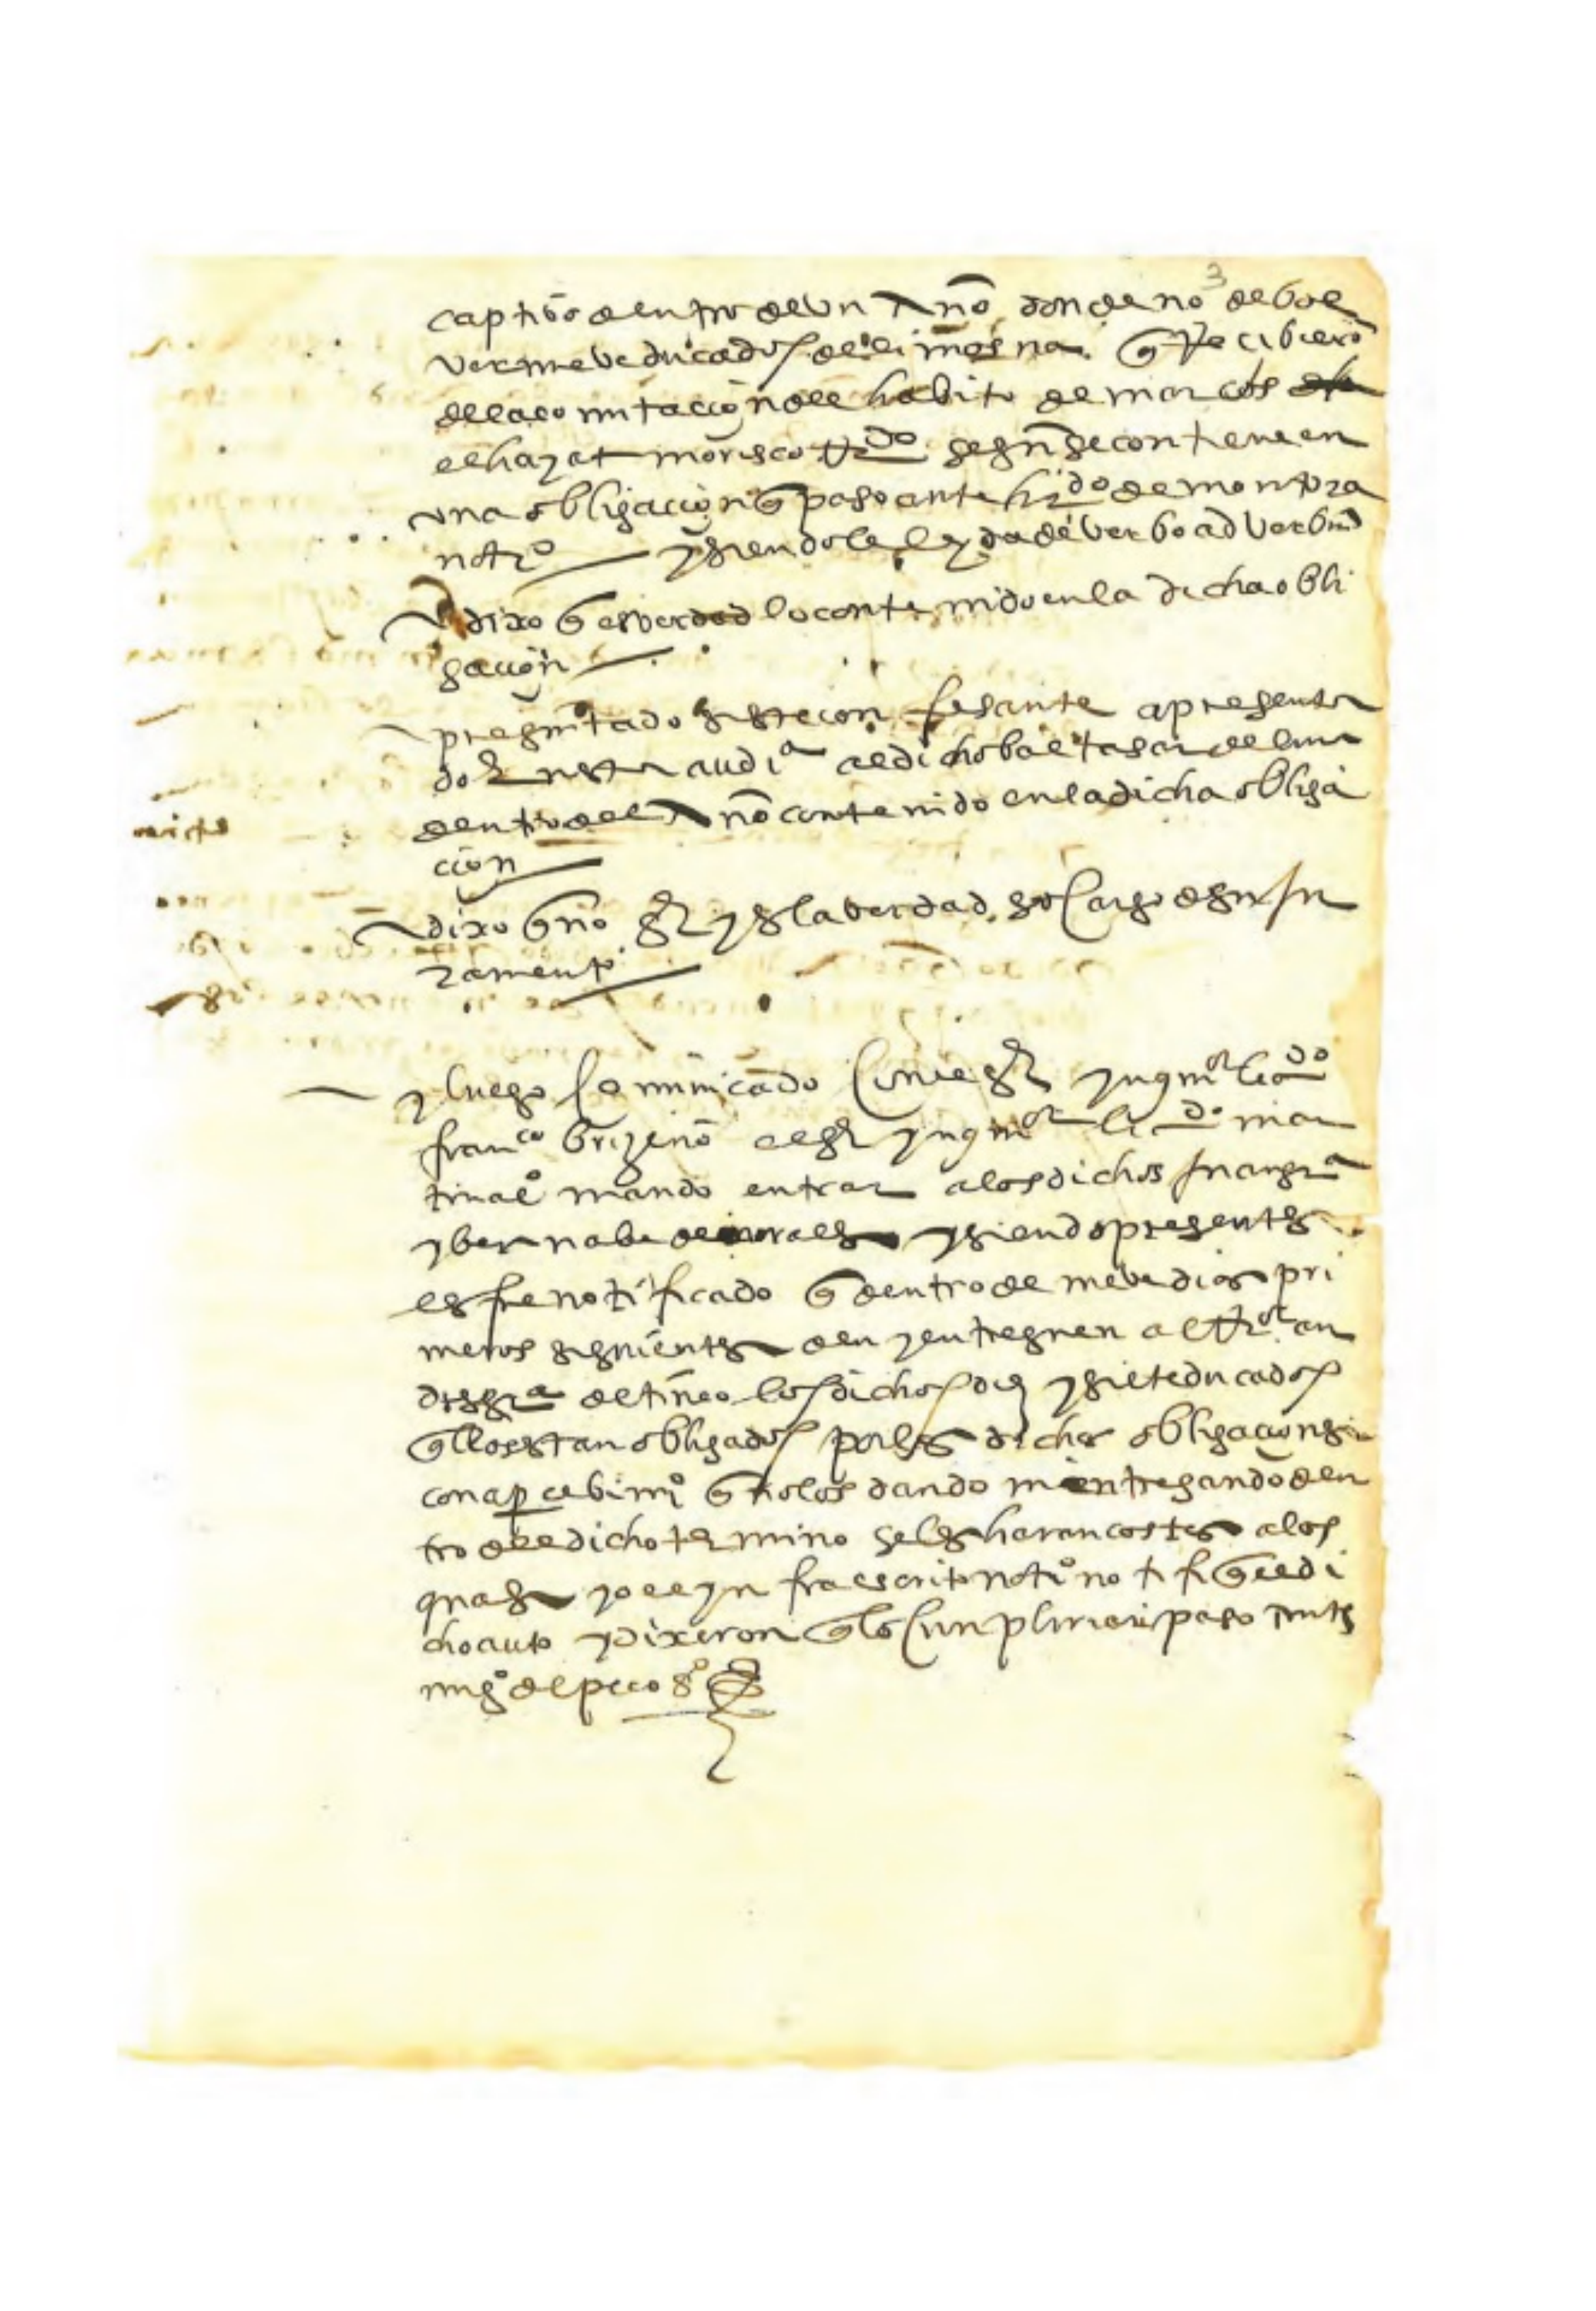 3
captivo dentro de un Año donde no de bol
ver nueve ducados de limosna. q̃ Recibierõ
de la comutacion del habito de marcos
el hayat morisco Rdo segũ se contiene en
una obligacion q̃ paso ante hrdo de montoya
notrº y siendole leyda de verbo ad verbũ
dixo q̃ es verdad lo contenido en la dicha obli
gacion
preguntado si este confesante a presenta
do en esta audiª al dicho baltasar de luna
dentro del Año contenido en la dicha obliga
cion
dixo q̃ no sr y es la verdad so cargo de su ju
ramento
y luego comunicado con el sr ynqor licdo
franco brizeño el sr ynqor licdo mar
tinalº mando entrar a los dichos Juan grª
y bernabe de morales y siendo presentes
les fue notificado q̃ dentro de nueve dias pri
meros siguientes den y entreguen al Ror an
dres grª de tineo los dichos diez y siete ducados
q̃ llos estan obligados por las dichas obligaciones
con apercebimº q̃ no los dando ni entregando den
tro del dicho termino se les haran costas a los
quales yo el yn fraescrito notº notifiq̃ el di
cho auto y dixeron q̃ lo cunpliran paso ante
mi gº del peco sº